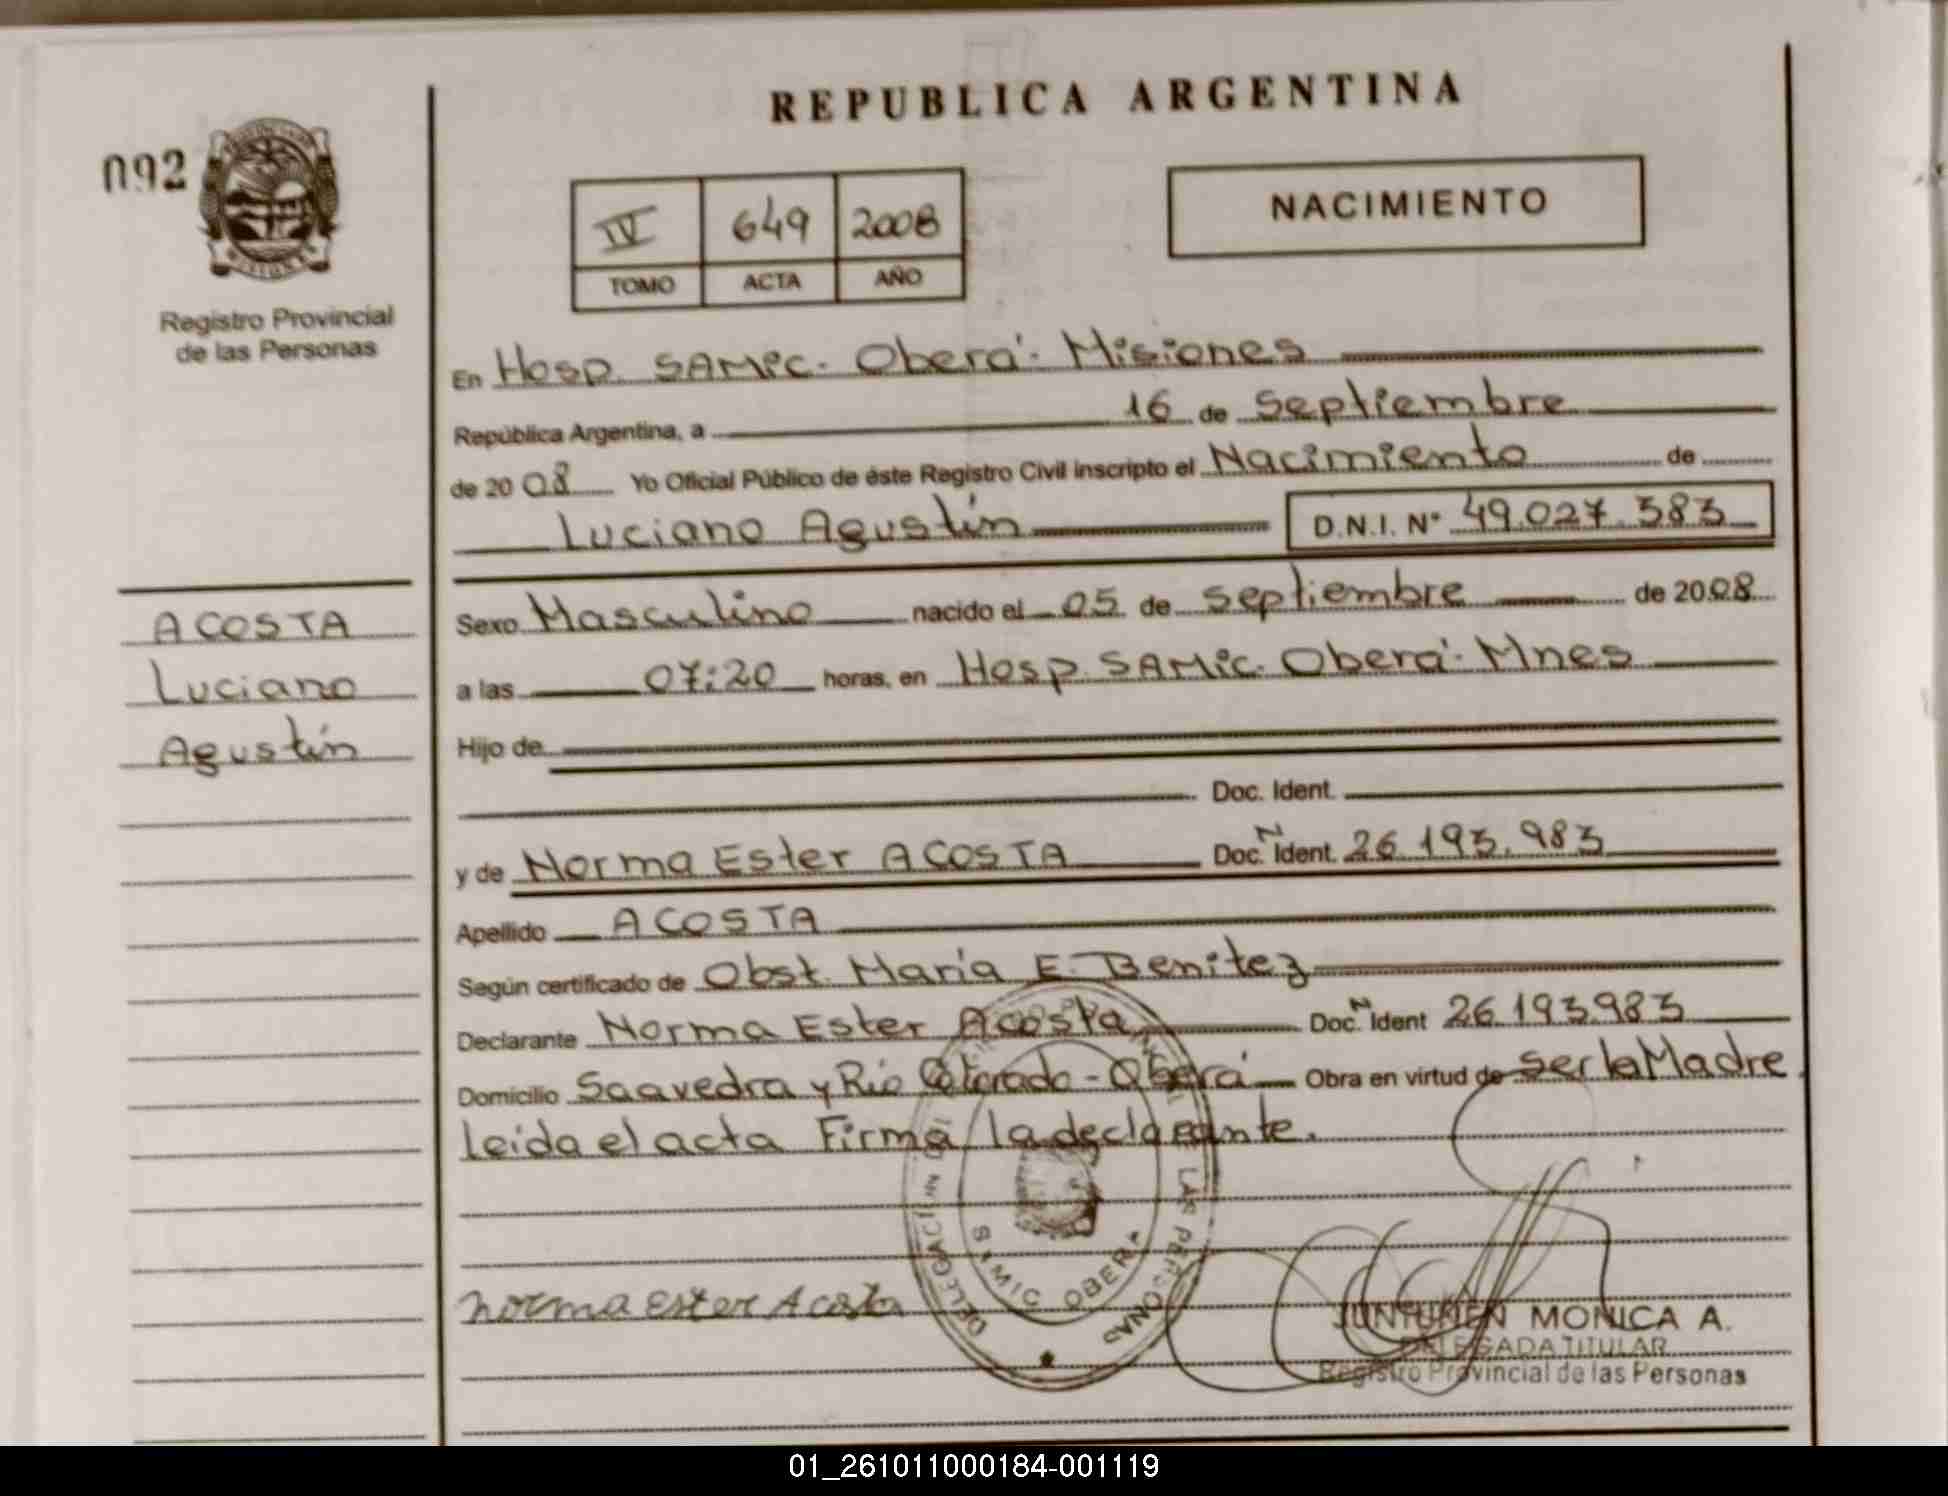 REPUBLICA ARGENTINA
092
IV 649 2008
TOMO ACTA AÑO
NACIMIENTO
Registro Provincial
de las Personas
En Hosp. SAMic. Oberá. Misiones
República Argentina, a 16 de Septiembre
de 2008 Yo Oficial Público de éste Registro Civil inscripto el Nacimiento de
Luciano Agustín D.N.I. N° 49.027.383
ACOSTA
Luciano
Agustín
Sexo Masculino nacido el 05 de Septiembre de 2008
a las 07:20 horas, en Hosp. SAMic. Oberá. Mnes
Hijo de
Doc. Ident.
y de Norma Ester ACOSTA Doc. N Ident. 26.193.983
Apellido ACOSTA
Según certificado de Obst. María E. Benitez
Declarante Norma Ester Acosta Doc. N Ident 26.193.983
Domicilio Saavedra y Río Colorado - Oberá Obra en virtud de ser la Madre.
leida el acta Firma la declarante.
Norma Ester Acosta
DELEGACION DEL LAS PERSONAS
SAMIC OBERA
JUNTUNEN MONICA A.
DELEGADA TITULAR
Registro Provincial de las Personas
01_261011000184-001119